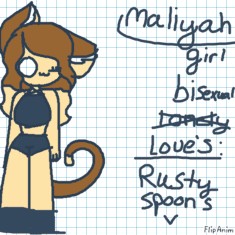 maliyah
girl
bisexual
Lonely
Love's:
Rusty
Spoon's
FlipAnim